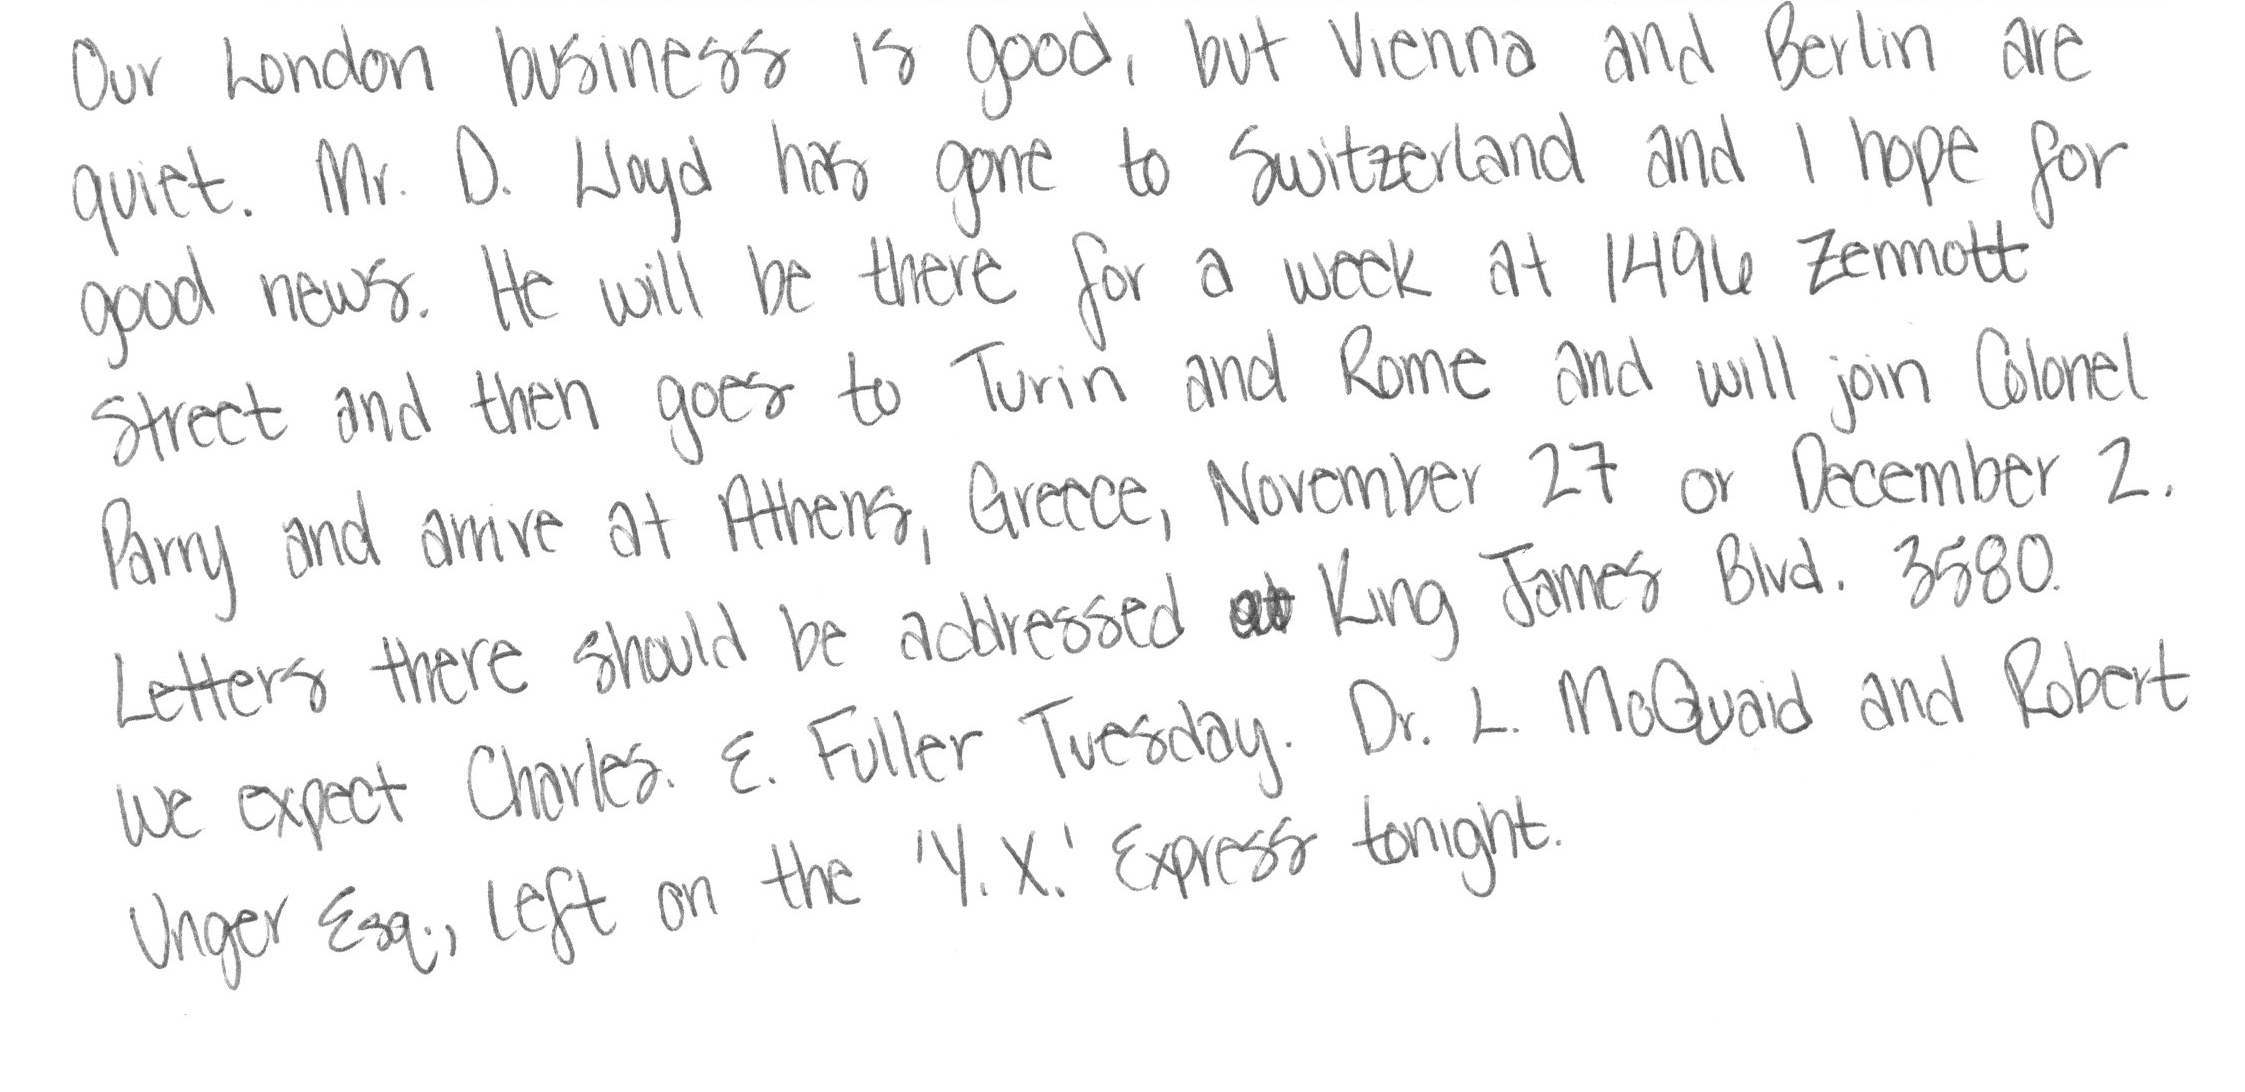 Our London business is good, but Vienna and Berlin are
quiet. Mr. D. Lloyd has gone to Switzerland and I hope for
good news. He will be there for a week at 1496 Zermott
Street and then goes to Turin and Rome and will join Colonel
Parry and arrive at Athens, Greece, November 27 or December 2.
Letters there should be addressed at King James Blvd. 3580.
We expect Charles. E. Fuller Tuesday. Dr. L. McQuaid and Robert
Unger Esq., left on the 'Y. X.' Express tonight.